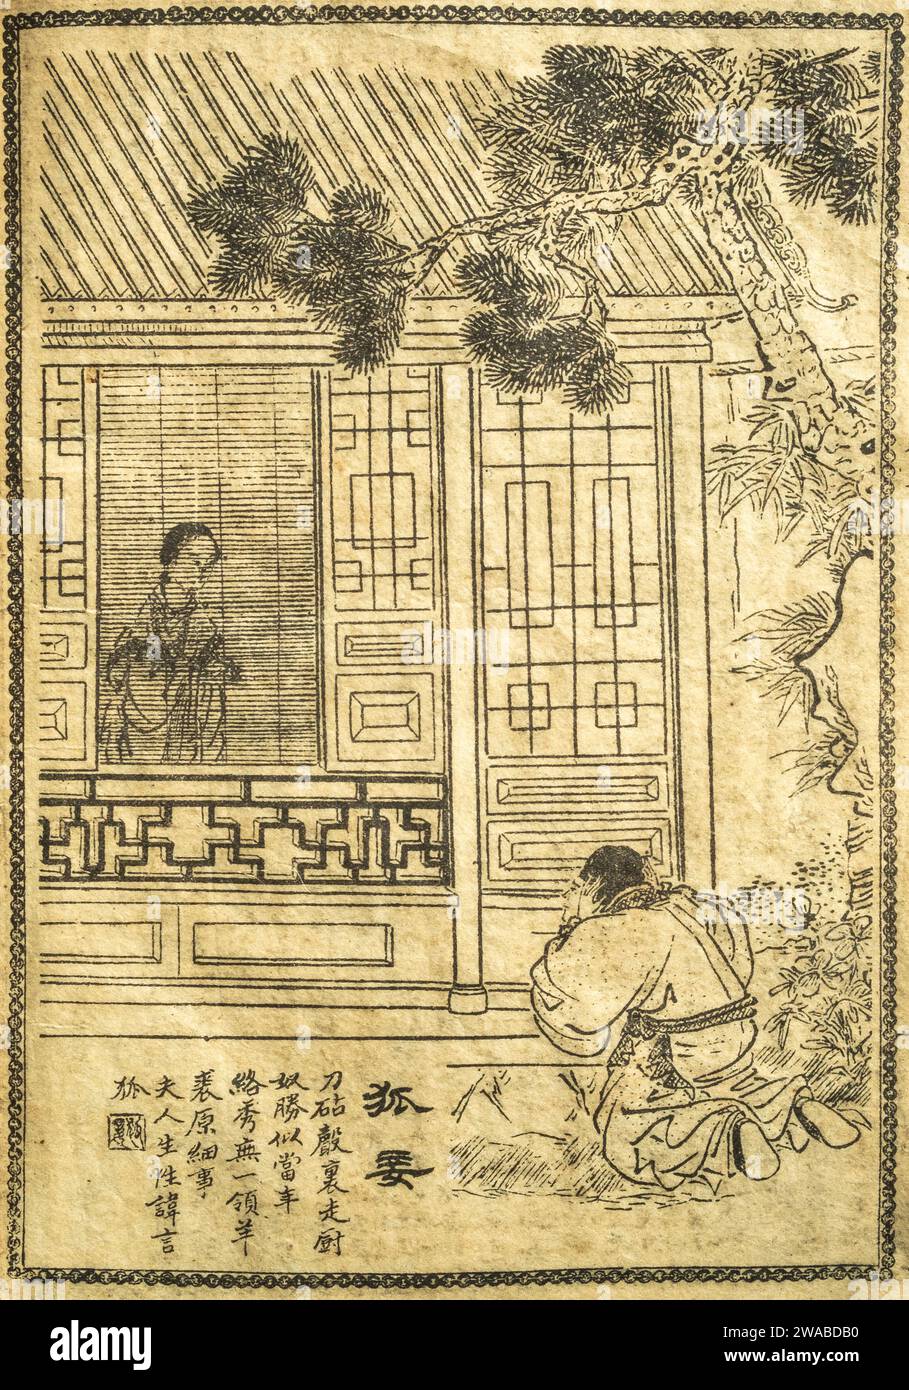 狐妾
刀砧聲裏走厨
奴勝似當年
絡秀無一領羊
裘原細事
夫人生性諱言
狐
alamy
Image ID: 2WABDB0
www.alamy.com